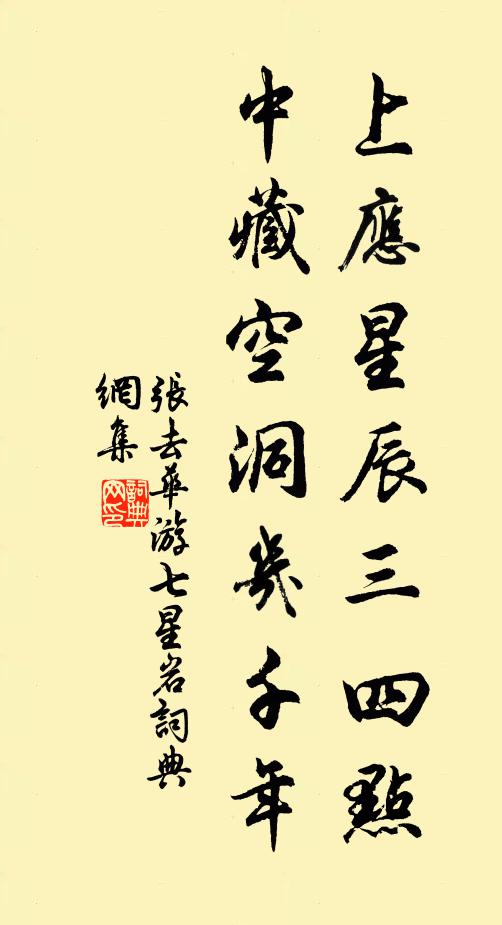 上應星辰三四點
中藏空洞幾千年
張去華游七星岩詞典
網集
詞典
网印